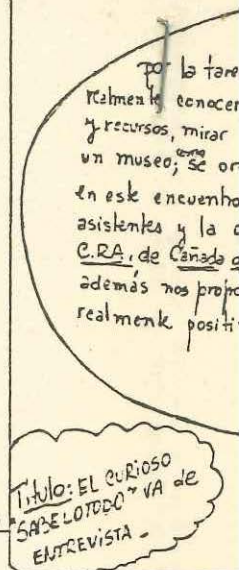 por la tare
realmente conocer
y recursos, mirar
como
un museo; se or
en este encuentro
asistentes y la c
C.RA. de Cañada d
además nos propo
realmente positi
Título: EL CURIOSO
"SABELOTODO" VA de
ENTREVISTA.